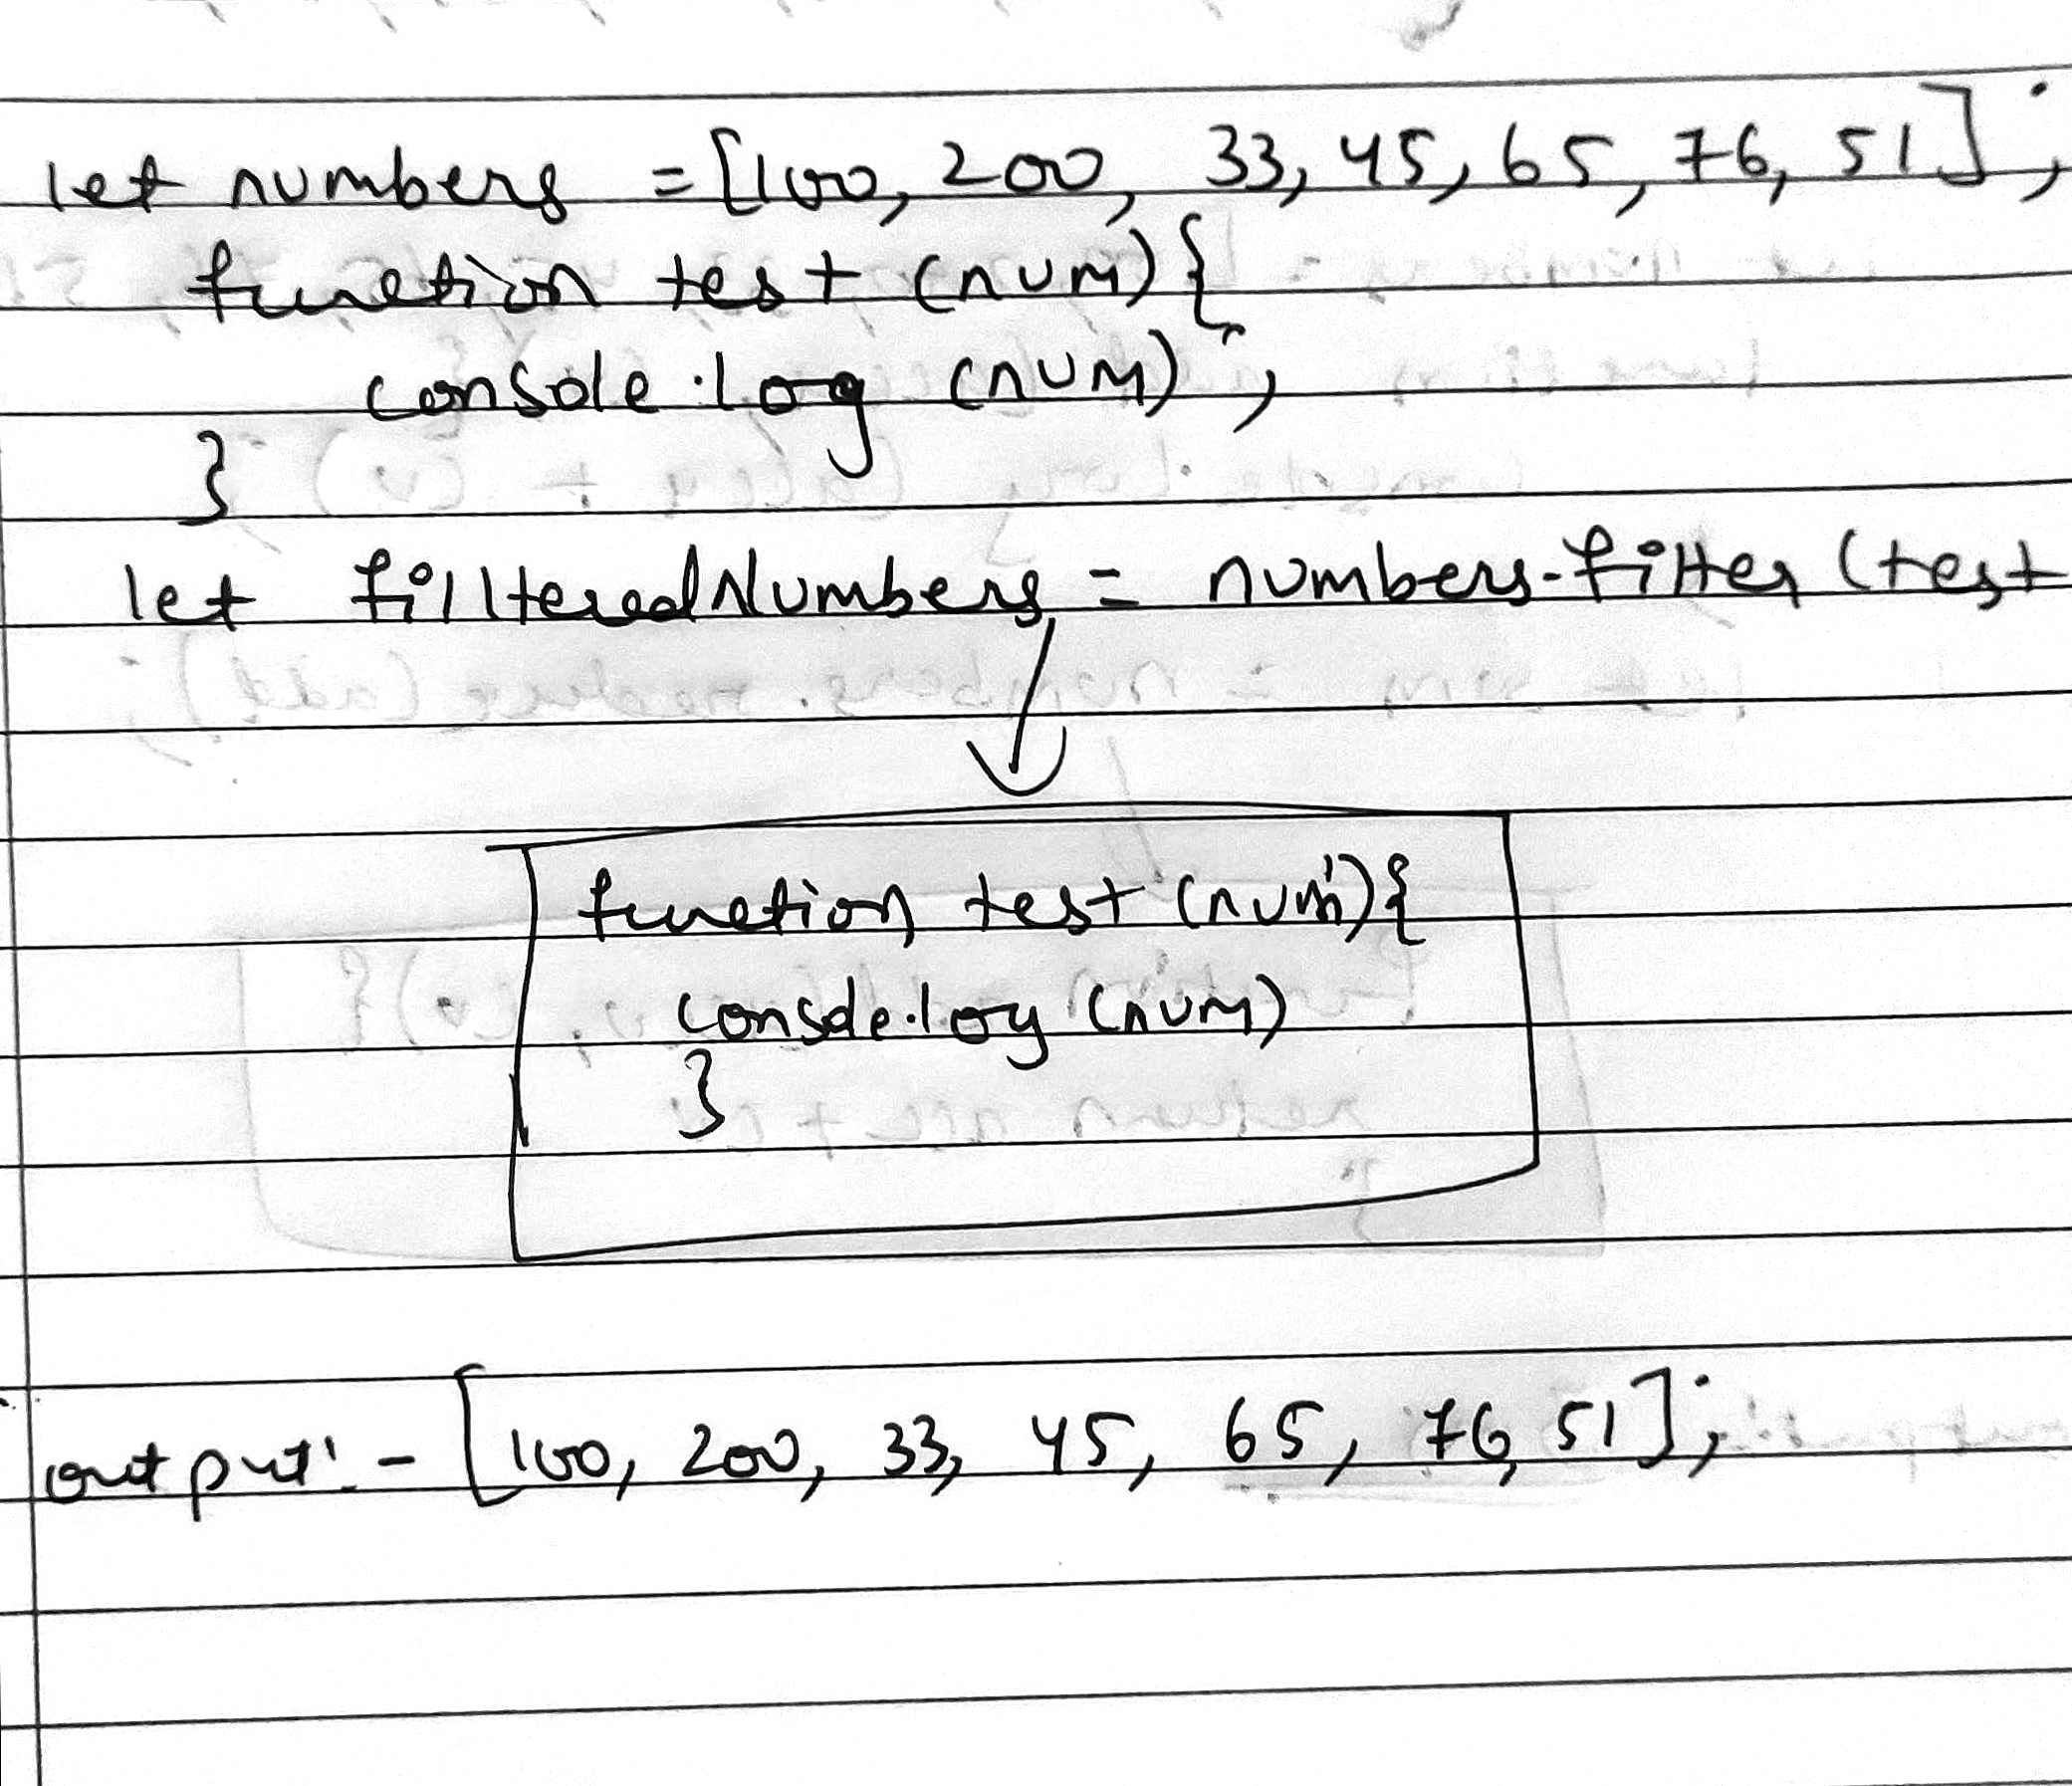 let numbers = [100, 200, 33, 45, 65, 76, 51];
function test (num) {
console.log (num);
}
let fillteredNumbers = numbers.filter (test
function test (num) {
console.log (num)
}
output:- [100, 200, 33, 45, 65, 76, 51];